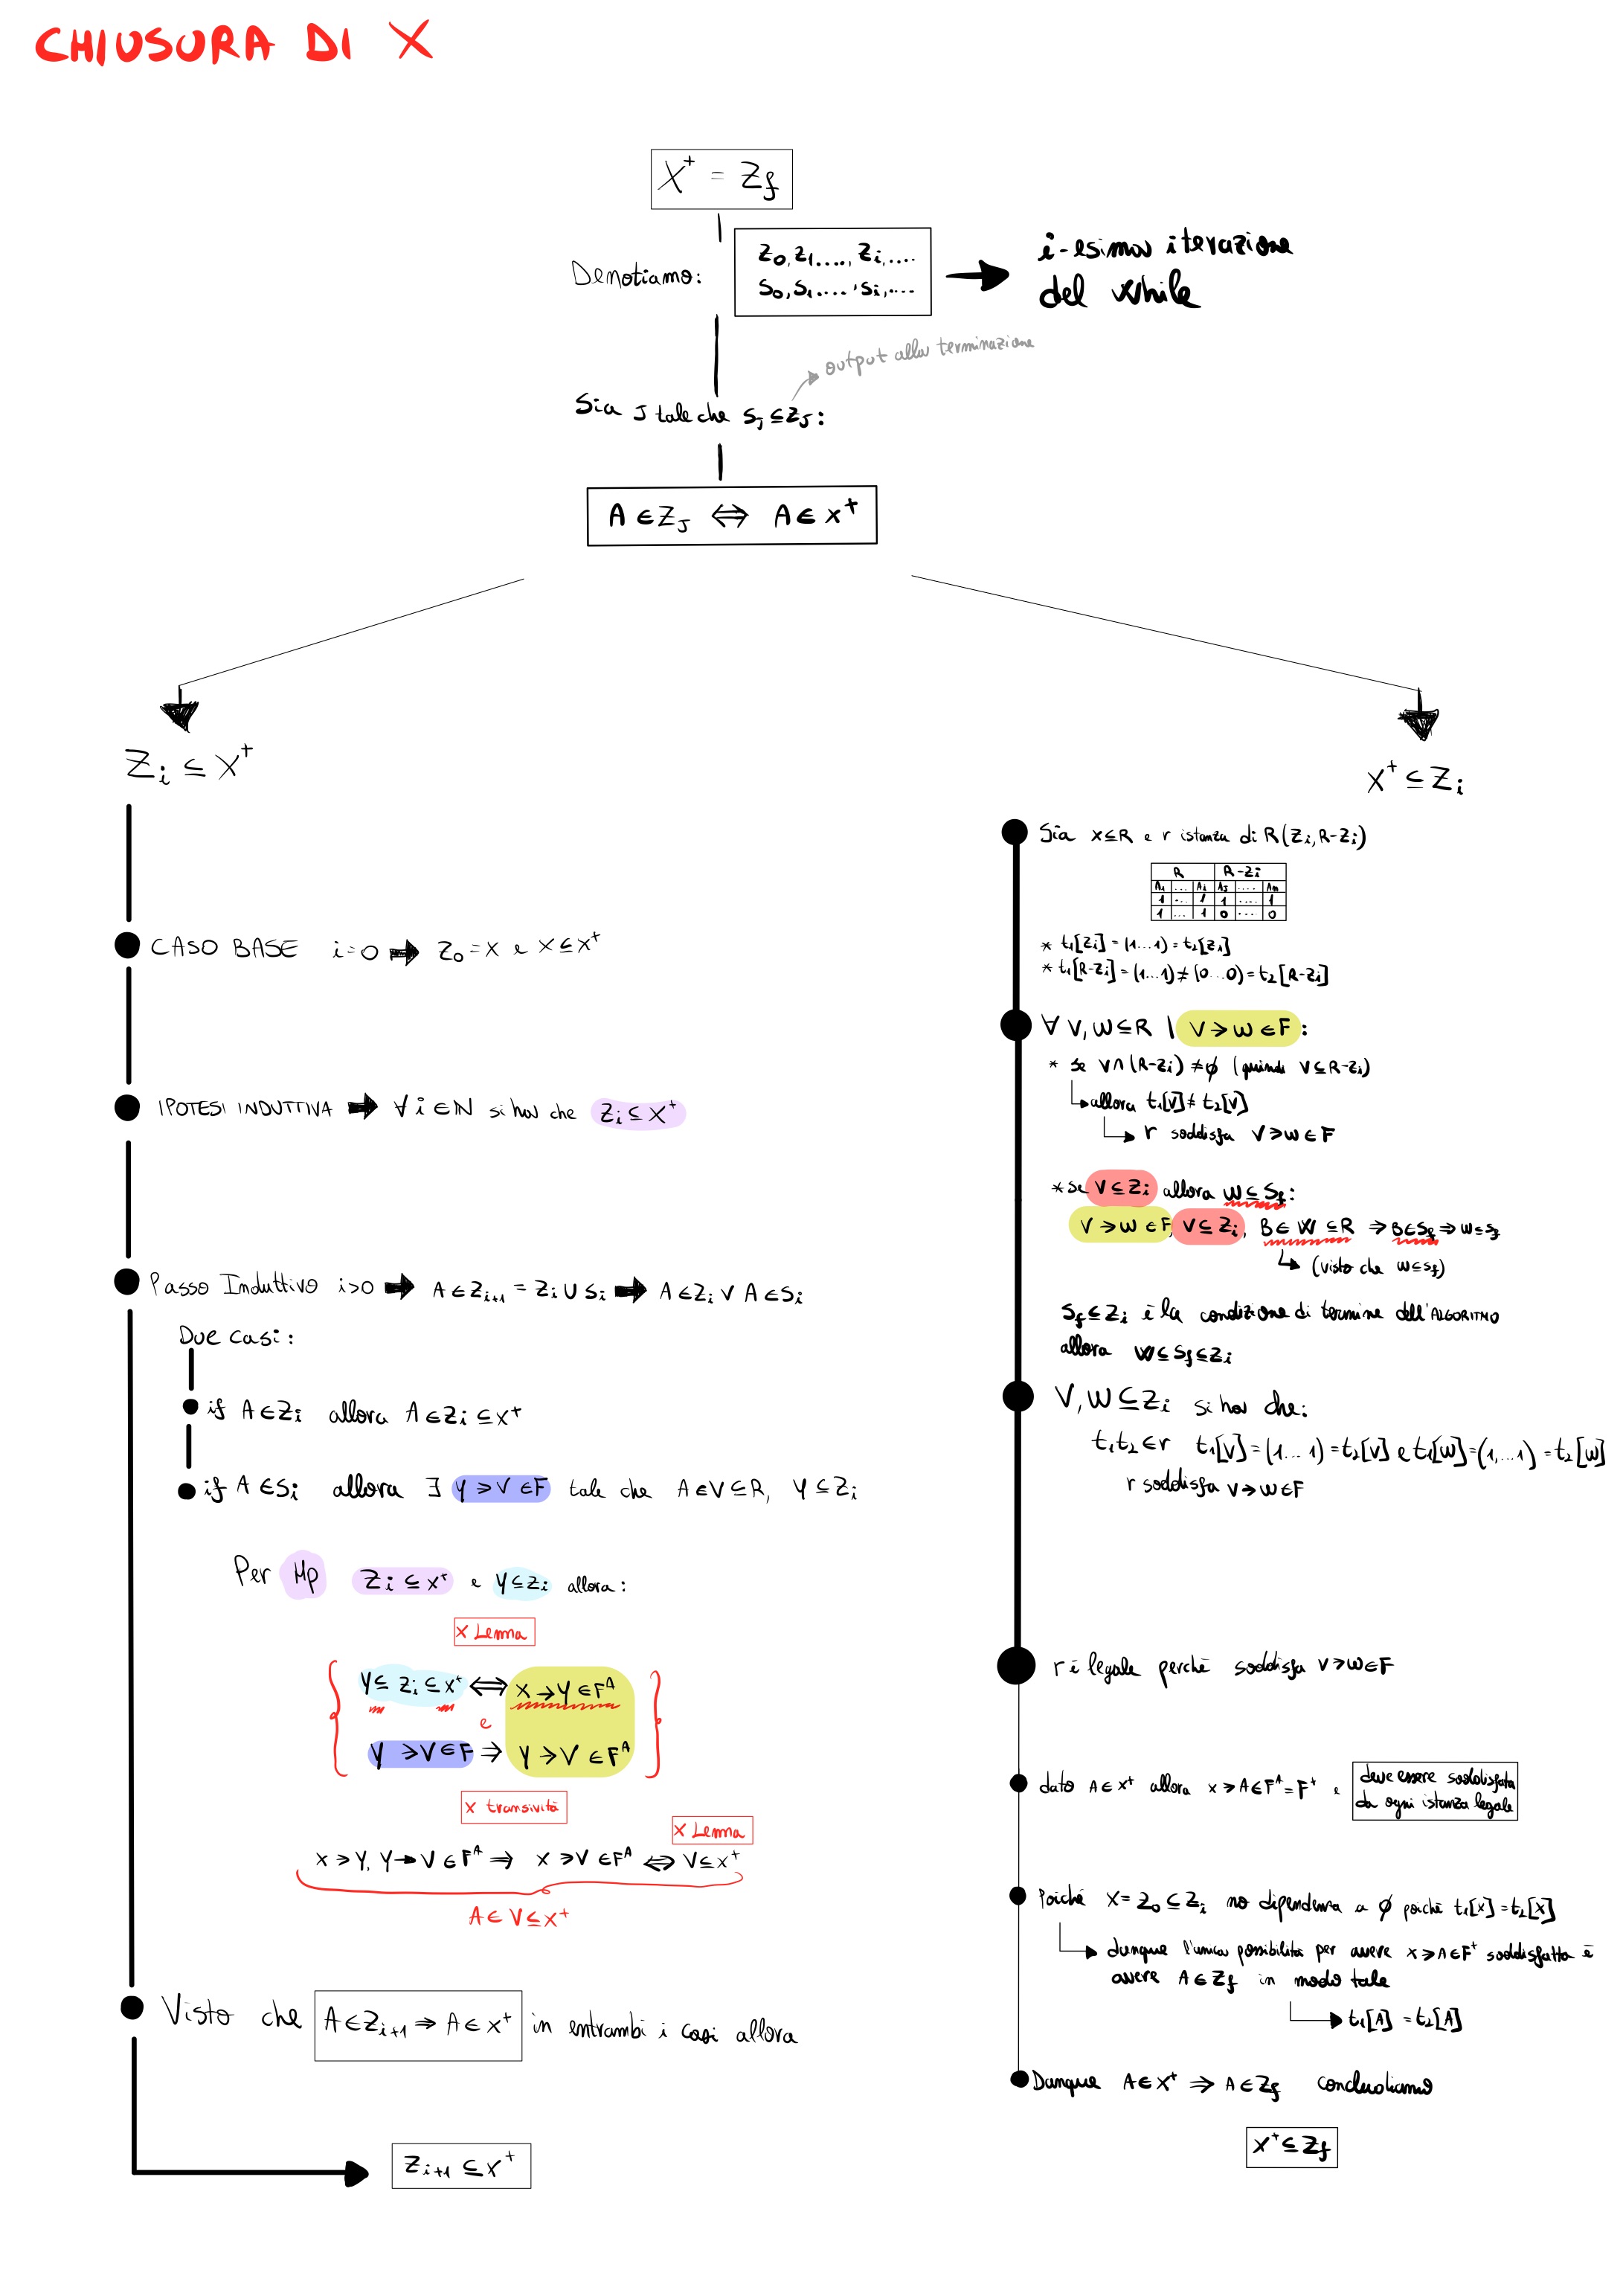 CHIUSURA DI X
X⁺ = Z_f
Denotiamo:
Z₀, Z₁...., Z_i,....
S₀, S₁....., S_i,....
i-esima iterazione
del while
output alla terminazione
Sia J tale che S_J ⊆ Z_J:
A ∈ Z_J ⇔ A ∈ X⁺
Z_i ⊆ X⁺
CASO BASE i=0 → Z₀ = X e X ⊆ X⁺
IPOTESI INDUTTIVA → ∀ i ∈ ℕ si ha che Z_i ⊆ X⁺
Passo Induttivo i>0 → A ∈ Z_{i+1} = Z_i ∪ S_i → A ∈ Z_i ∨ A ∈ S_i
Due casi:
if A ∈ Z_i allora A ∈ Z_i ⊆ X⁺
if A ∈ S_i allora ∃ Y → V ∈ F tale che A ∈ V ⊆ R, Y ⊆ Z_i
Per Hp Z_i ⊆ X⁺ e Y ⊆ Z_i allora:
X Lemma
Y ⊆ Z_i ⊆ X⁺ ⇔ X → Y ∈ F^A
e
Y → V ∈ F ⇒ Y → V ∈ F^A
X transività
X Lemma
X → Y, Y → V ∈ F^A ⇒ X → V ∈ F^A ⇔ V ⊆ X⁺
A ∈ V ⊆ X⁺
Visto che A ∈ Z_{i+1} ⇒ A ∈ X⁺ in entrambi i casi allora
Z_{i+1} ⊆ X⁺
X⁺ ⊆ Z_i
Sia X ⊆ R e r istanza di R(Z_i, R-Z_i)
R R-Z_i
A₁ ... A_i A_J .... A_n
1 ... 1 1 .... 1
1 ... 1 0 .... 0
* t₁[Z_i] = (1...1) = t₂[Z_i]
* t₁[R-Z_i] = (1...1) ≠ (0...0) = t₂[R-Z_i]
∀ V, W ⊆ R | V → W ∈ F:
* se V ∩ (R-Z_i) ≠ ∅ (quindi V ⊆ R-Z_i)
allora t₁[V] ≠ t₂[V]
r soddisfa V → W ∈ F
* se V ⊆ Z_i allora W ⊆ S_f:
V → W ∈ F, V ⊆ Z_i, B ∈ W ⊆ R ⇒ B ∈ S_f ⇒ W ⊆ S_f
(visto che W ⊆ S_f)
S_f ⊆ Z_i è la condizione di termine dell'ALGORITMO
allora W ⊆ S_f ⊆ Z_i
V, W ⊆ Z_i si ha che:
t₁ t₂ ∈ r t₁[V] = (1...1) = t₂[V] e t₁[W] = (1,...1) = t₂[W]
r soddisfa V → W ∈ F
r è legale perchè soddisfa V → W ∈ F
dato A ∈ X⁺ allora X → A ∈ F^A = F⁺ e
deve essere soddisfata
da ogni istanza legale
Poichè X = Z₀ ⊆ Z_i no dipendenza a ∅ poichè t₁[X] = t₂[X]
dunque l'unica possibilità per avere X → A ∈ F⁺ soddisfatta è
avere A ∈ Z_f in modo tale
t₁[A] = t₂[A]
Dunque A ∈ X⁺ ⇒ A ∈ Z_f concludiamo
X⁺ ⊆ Z_f